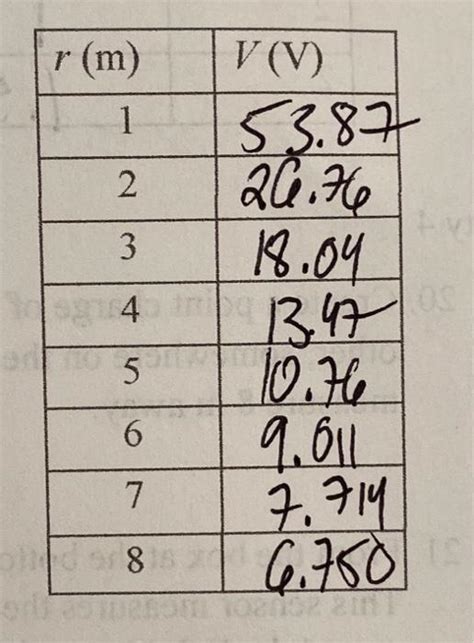 r (m) V (V)
1 53.87
2 26.76
3 18.04
4 13.47
5 10.76
6 9.011
7 7.714
8 6.750